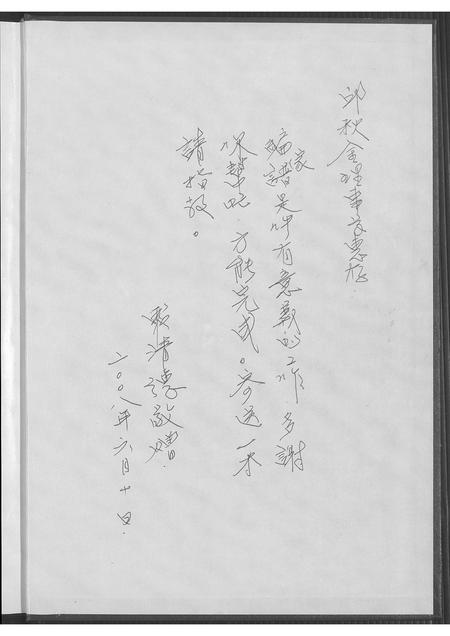 邱秋金理事長惠存
編家譜是件有意義的工作 多謝
你幫忙 方能完成。寄送一本
請指教。
清 敬贈
二〇〇八年六月十日